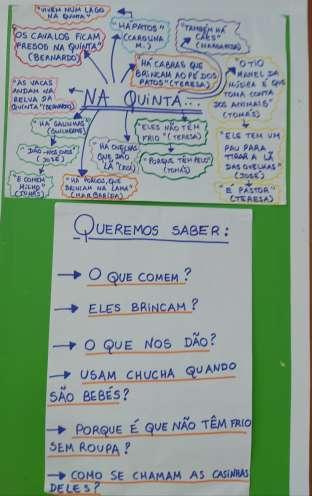 "VIVEM NUM LAGO
NA QUINTA"
"HÁ PATOS"
(CAROLINA
M.)
"TAMBÉM HÁ
CÃES"
(MARGARIDA)
"OS CAVALOS FICAM
PRESOS NA QUINTA"
(BERNARDO)
"HÁ CABRAS QUE
BRINCAM AO PÉ DOS
PATOS" (TERESA)
"O TIO
MANEL DA
MÚSICA É QUE
TOMA CONTA
DOS ANIMAIS"
(TOMÁS)
"AS VACAS
ANDAM NA
RELVA DA
QUINTA" (BERNARDO)
NA QUINTA...
"HÁ GALINHAS"
(GUILHERME)
"DÃO-NOS OVOS"
(JOSÉ)
"E COMEM
MILHO"
"HÁ OVELHAS
QUE DÃO
LÃ"
"HÁ PORCOS, QUE
BRINCAM NA LAMA"
(MARGARIDA)
"ELES NÃO TÊM
FRIO" (TERESA)
"PORQUE TÊM PELO"
(TOMÁS)
"ELE TEM UM
PAU PARA
TIRAR A LÃ
DAS OVELHAS"
(JOSÉ)
"É PASTOR"
(TERESA)
QUEREMOS SABER:
→ O QUE COMEM?
→ ELES BRINCAM?
→ O QUE NOS DÃO?
→ USAM CHUCHA QUANDO
SÃO BEBÉS?
→ PORQUE É QUE NÃO TÊM FRIO
SEM ROUPA?
→ COMO SE CHAMAM AS CASINHAS
DELES?